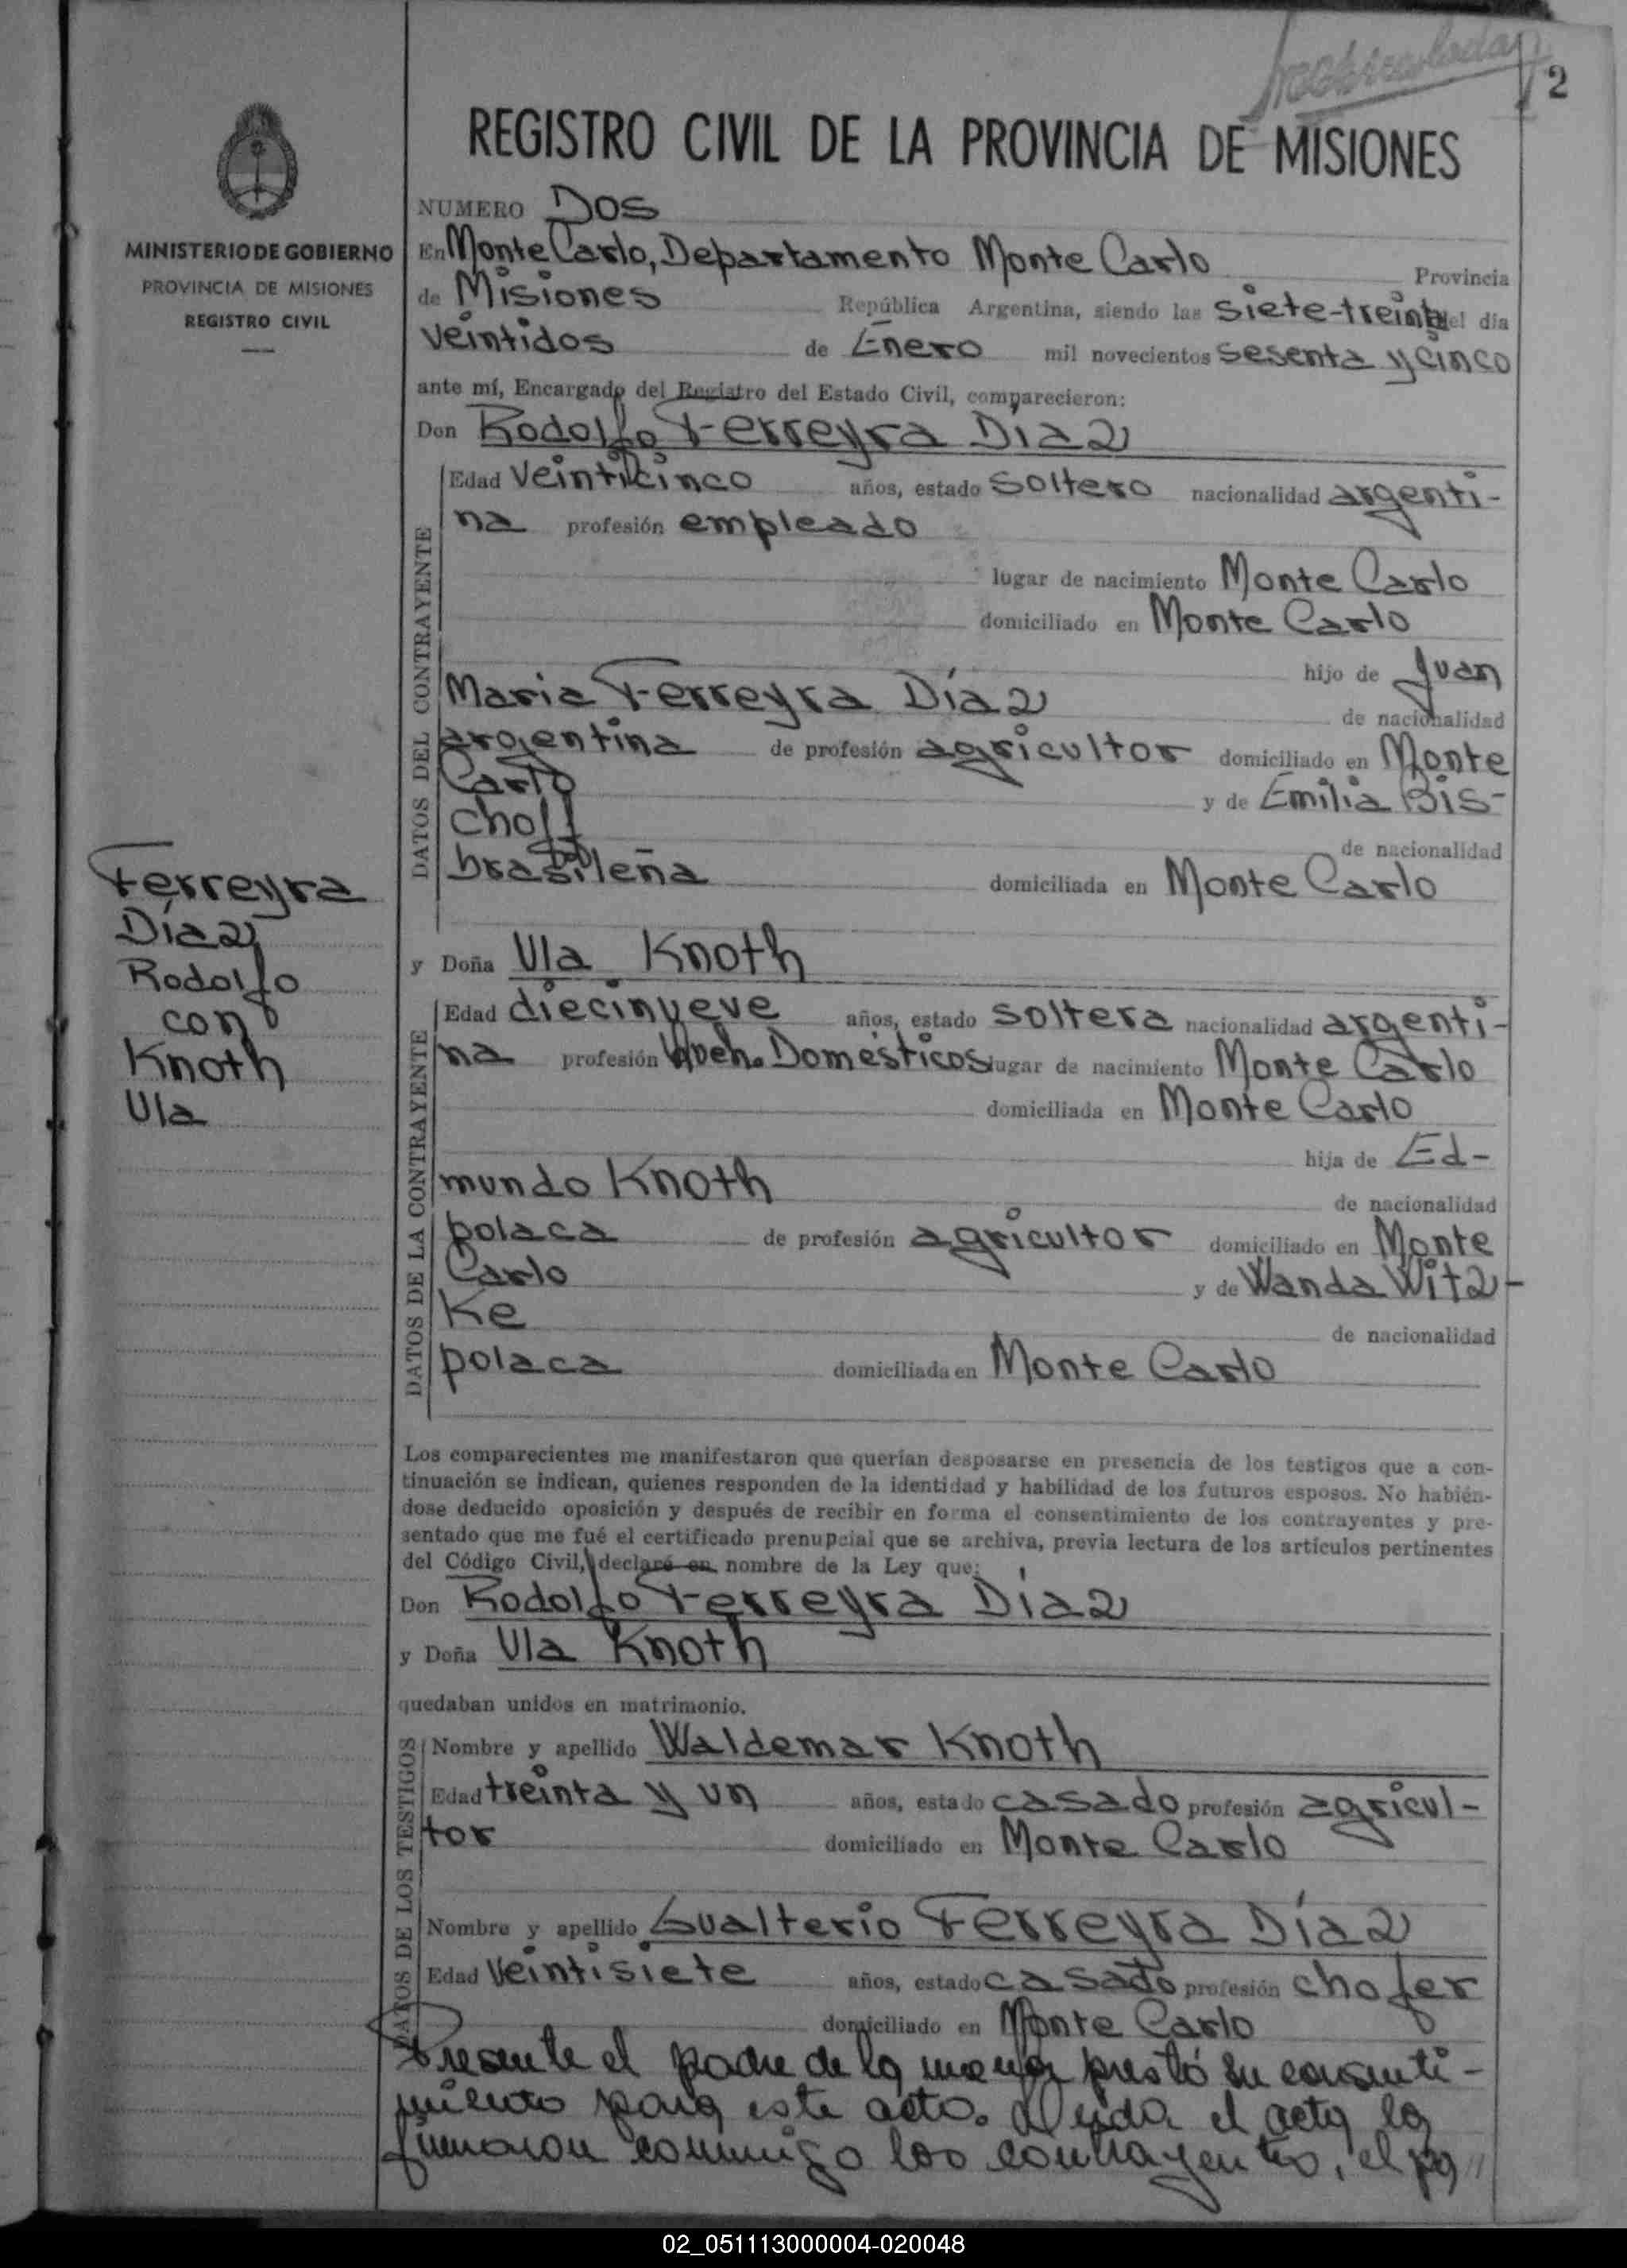 Matriculada
2
REGISTRO CIVIL DE LA PROVINCIA DE MISIONES
MINISTERIO DE GOBIERNO
PROVINCIA DE MISIONES
REGISTRO CIVIL
NUMERO Dos
En Monte Carlo, Departamento Monte Carlo Provincia
de Misiones República Argentina, siendo las siete-treinta del día
veintidos de Enero mil novecientos sesenta y cinco
ante mí, Encargado del Registro del Estado Civil, comparecieron:
Don Rodolfo Ferreyra Díaz
DATOS DEL CONTRAYENTE
Edad veinticinco años, estado soltero nacionalidad argenti-
na profesión empleado
lugar de nacimiento Monte Carlo
domiciliado en Monte Carlo
hijo de Juan
Maria Ferreyra Díaz de nacionalidad
argentina de profesión agricultor domiciliado en Monte
Carlo y de Emilia Bis-
choff de nacionalidad
brasileña domiciliada en Monte Carlo
Ferreyra
Díaz
Rodolfo
con
Knoth
Ula
y Doña Ula Knoth
DATOS DE LA CONTRAYENTE
Edad diecinueve años, estado soltera nacionalidad argenti-
na profesión Queh. Domésticos lugar de nacimiento Monte Carlo
domiciliada en Monte Carlo
hija de Ed-
mundo Knoth de nacionalidad
polaca de profesión agricultor domiciliado en Monte
Carlo y de Wanda Witz-
Ke de nacionalidad
polaca domiciliada en Monte Carlo
Los comparecientes me manifestaron que querían desposarse en presencia de los testigos que a con-
tinuación se indican, quienes responden de la identidad y habilidad de los futuros esposos. No habién-
dose deducido oposición y después de recibir en forma el consentimiento de los contrayentes y pre-
sentado que me fué el certificado prenupcial que se archiva, previa lectura de los artículos pertinentes
del Código Civil, declaré en nombre de la Ley que:
Don Rodolfo Ferreyra Díaz
y Doña Ula Knoth
quedaban unidos en matrimonio.
DATOS DE LOS TESTIGOS
Nombre y apellido Waldemar Knoth
Edad treinta y un años, estado casado profesión agricul-
tor domiciliado en Monte Carlo
Nombre y apellido Gualterio Ferreyra Díaz
Edad veintisiete años, estado casado profesión chofer
domiciliado en Monte Carlo
Presente el padre de la menor prestó su consenti-
miento para este acto. Leída el acta la
firmaron conmigo los contrayentes, el pa//
02_051113000004-020048